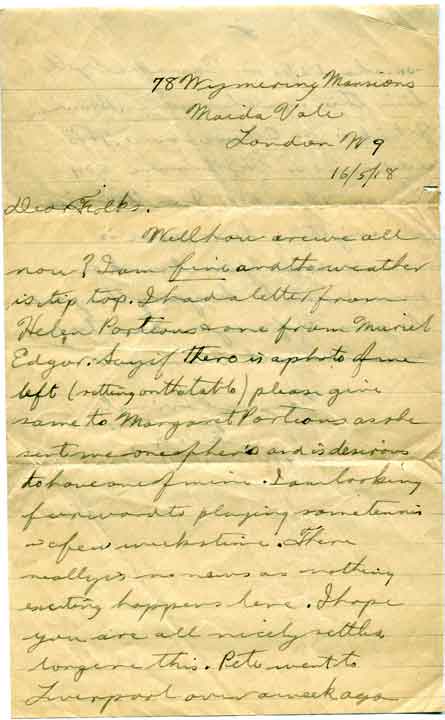 78 Wymering Mansions
Maida Vale
London W9
16/5/18
Dear Folks.
Well how are we all
now? I am fine and the weather
is tip top. I had a letter from
Helen Porteous & one from Muriel
Edgar. Say if there is a photo of me
left (sitting on the table) please give
same to Margaret Porteous as she
sent me one of her's and is desirous
to have one of mine. I am looking
forward to playing some tennis
a few weeks time. There
really is no news as nothing
exciting happens here. I hope
you are all nicely settled
long ere this. Pete went to
Liverpool over a week ago